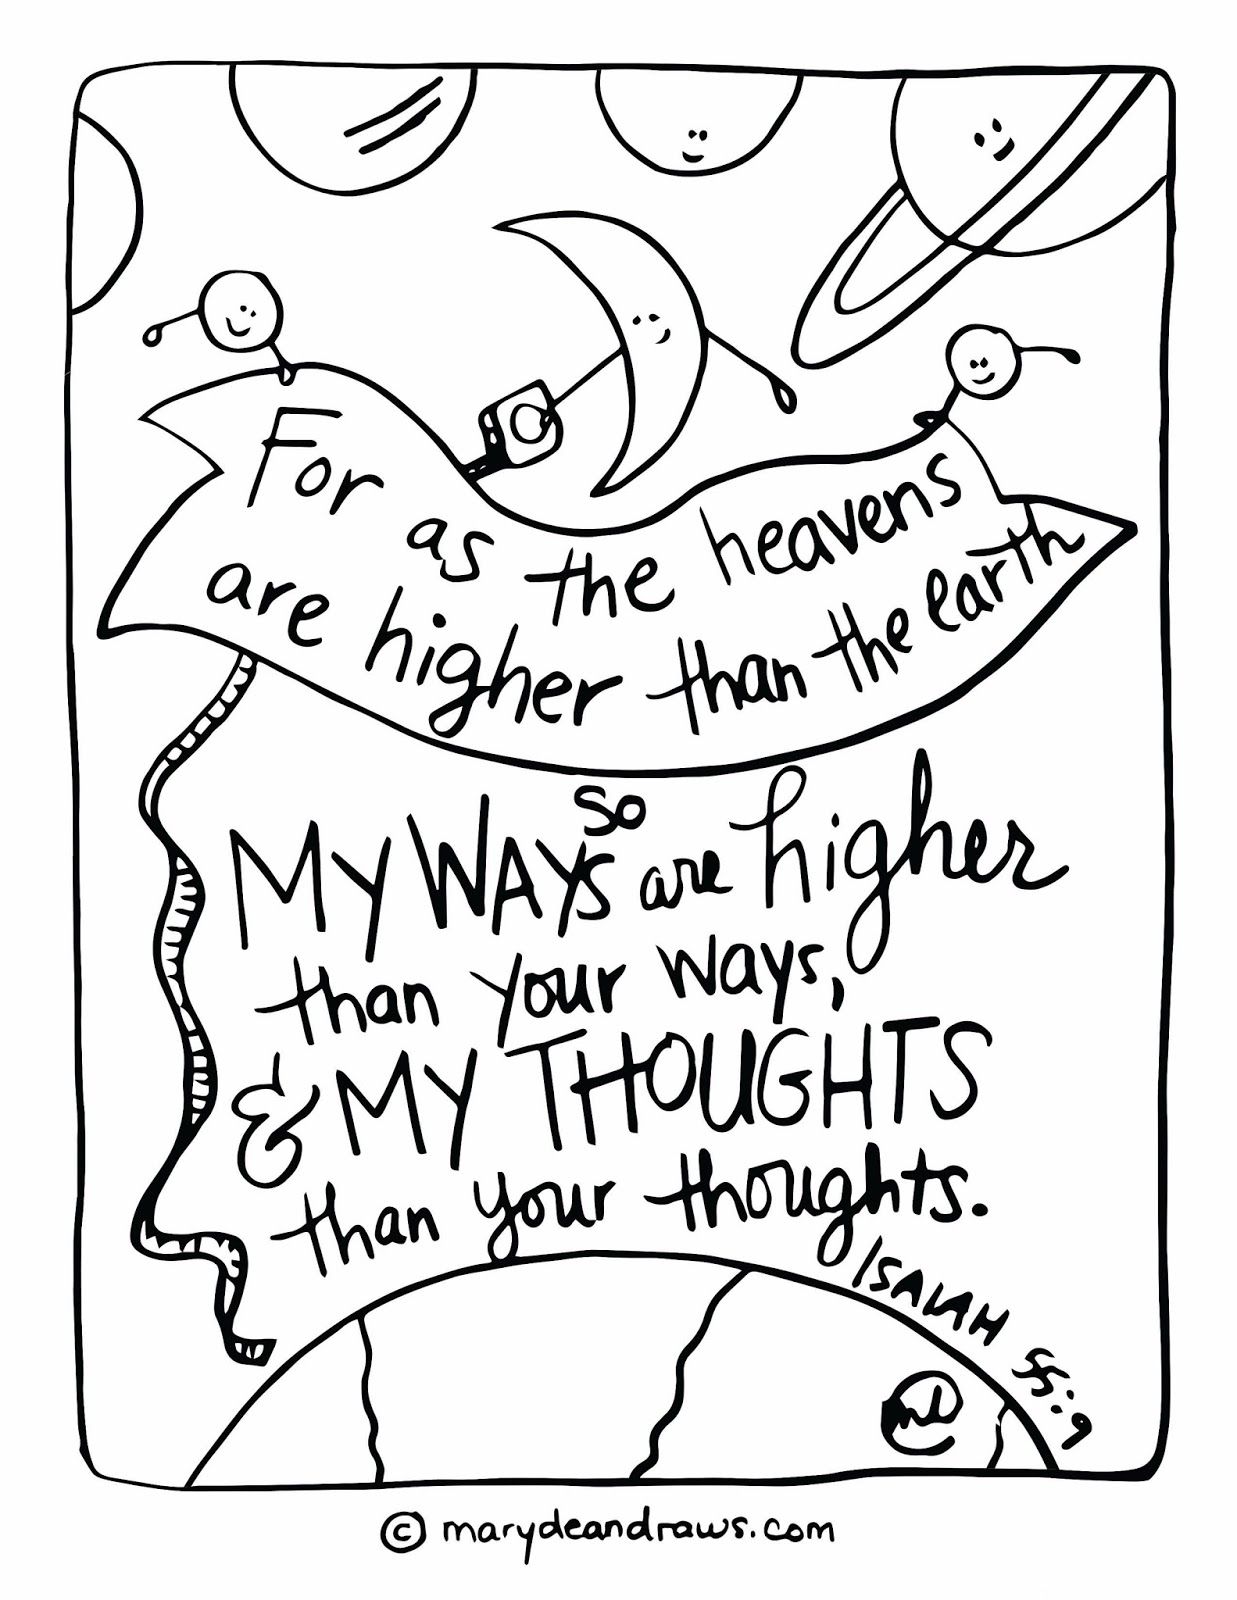 For as the heavens
are higher than the earth
so
MY WAYS are higher
than your ways,
& MY THOUGHTS
than your thoughts.
ISAIAH 55:9
md
© marydeandraws.com